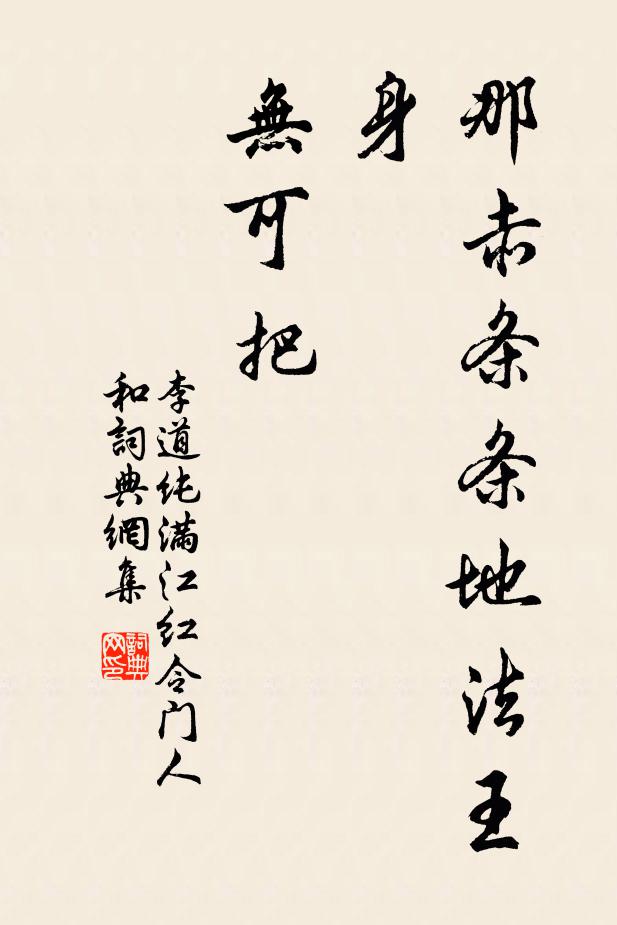 那赤条条地法王
身
無可把
李道纯满江红令门人
和詞典網集
詞典
网印